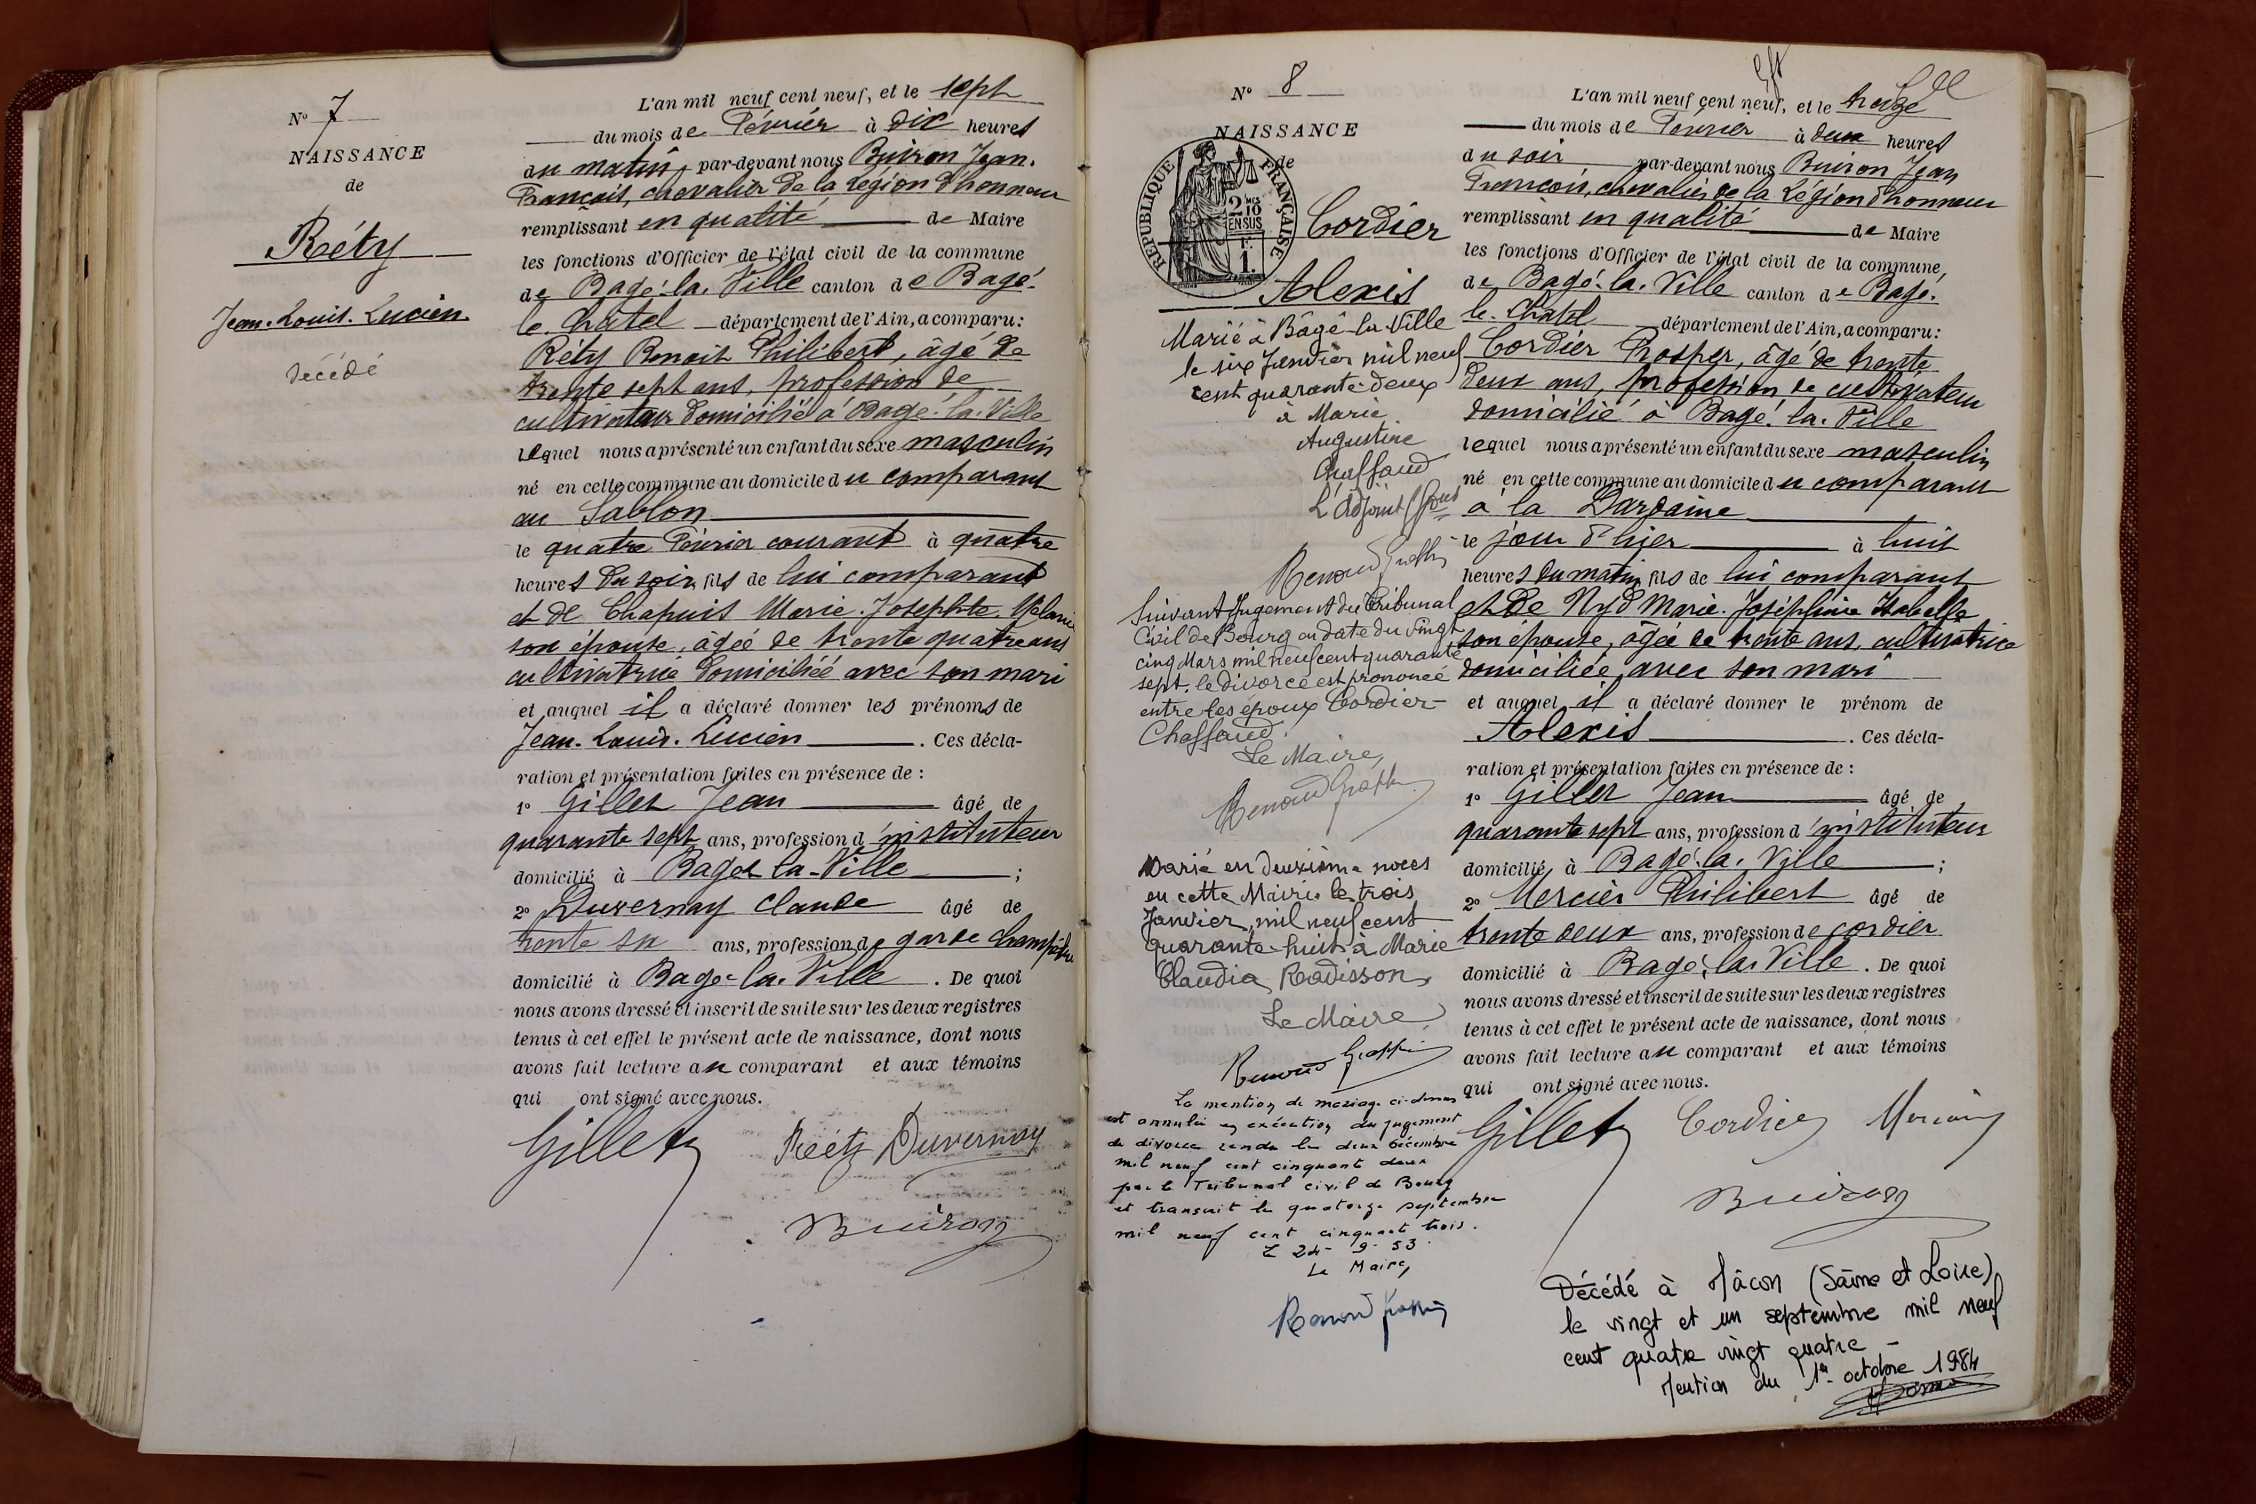 N° 7
NAISSANCE
de
Réty
Jean-Louis-Lucien.
Décédé
L'an mil neuf cent neuf, et le sept
du mois de Février à dix heures
du matin, par-devant nous Buiron Jean-
François, chevalier de la Légion d'honneur
remplissant en qualité de Maire
les fonctions d'Officier de l'état civil de la commune
de Bagé-la-Ville canton de Bagé-
le-Châtel département de l'Ain, a comparu:
Réty Benoit Philibert, âgé de
trente sept ans, profession de
cultivateur domicilié à Bagé-la-Ville
lequel nous a présenté un enfant du sexe masculin
né en cette commune au domicile du comparant
au Sablon
le quatre Février courant à quatre
heures du soir, fils de lui comparant
et de Chapuis Marie-Josephte-Mélanie
son épouse, âgée de trente quatre ans
cultivatrice domiciliée avec son mari
et auquel il a déclaré donner les prénoms de
Jean-Louis-Lucien. Ces décla-
ration et présentation faites en présence de :
1° Gillet Jean âgé de
quarante sept ans, profession d'instituteur
domicilié à Bagé-la-Ville ;
2° Duvernay Claude âgé de
trente six ans, profession de garde champêtre
domicilié à Bagé-la-Ville. De quoi
nous avons dressé et inscrit de suite sur les deux registres
tenus à cet effet le présent acte de naissance, dont nous
avons fait lecture au comparant et aux témoins
qui ont signé avec nous.
Gillet Réty Duvernay
Buiron
N° 8
NAISSANCE
de
REPUBLIQUE FRANÇAISE
2/10 EN SUS
1 F.
Cordier
Alexis
Marié à Bâgé-la-Ville
le six Janvier mil neuf
cent quarante-deux
à Marie
Augustine
Chaffaud
L'Adjoint
Renoud Grappin
Suivant Jugement du Tribunal
Civil de Bourg en date du vingt
cinq Mars mil neuf cent quarante
sept, le divorce est prononcé
entre les époux Cordier-
Chaffaud.
Le Maire,
Renoud Grappin
Marié en deuxième noces
en cette Mairie le trois
Janvier, mil neuf cent
quarante-huit à Marie
Claudia Radisson
Le Maire
Renoud Grappin
La mention de mariage ci-dessus
est annulée en exécution du jugement
de divorce rendu le deux décembre
mil neuf cent cinquante deux
par le Tribunal civil de Bourg
et transcrit le quatorze septembre
mil neuf cent cinquante trois.
Le 24-9-53.
Le Maire,
Renoud Grappin
L'an mil neuf cent neuf, et le treize
du mois de Février à deux heures
du soir par-devant nous Buiron Jean
François, chevalier de la Légion d'honneur
remplissant en qualité de Maire
les fonctions d'Officier de l'état civil de la commune
de Bagé-la-Ville canton de Bagé-
le-Châtel département de l'Ain, a comparu:
Cordier Prosper, âgé de trente
deux ans, profession de cultivateur
domicilié à Bagé-la-Ville
lequel nous a présenté un enfant du sexe masculin
né en cette commune au domicile du comparant
à la Dardaine
le jour d'hier à huit
heures du matin, fils de lui comparant
et de Nyd Marie-Joséphine Isabelle
son épouse, âgée de trente ans, cultivatrice
domiciliée avec son mari
et auquel il a déclaré donner le prénom de
Alexis. Ces décla-
ration et présentation faites en présence de :
1° Gillet Jean âgé de
quarante sept ans, profession d'instituteur
domicilié à Bagé-la-Ville ;
2° Mercier Philibert âgé de
trente deux ans, profession de cordier
domicilié à Bagé-la-Ville. De quoi
nous avons dressé et inscrit de suite sur les deux registres
tenus à cet effet le présent acte de naissance, dont nous
avons fait lecture au comparant et aux témoins
qui ont signé avec nous.
Gillet Cordier Mercier
Buiron
Décédé à Mâcon (Saône et Loire)
le vingt et un septembre mil neuf
cent quatre vingt quatre -
Mention du 1er octobre 1984